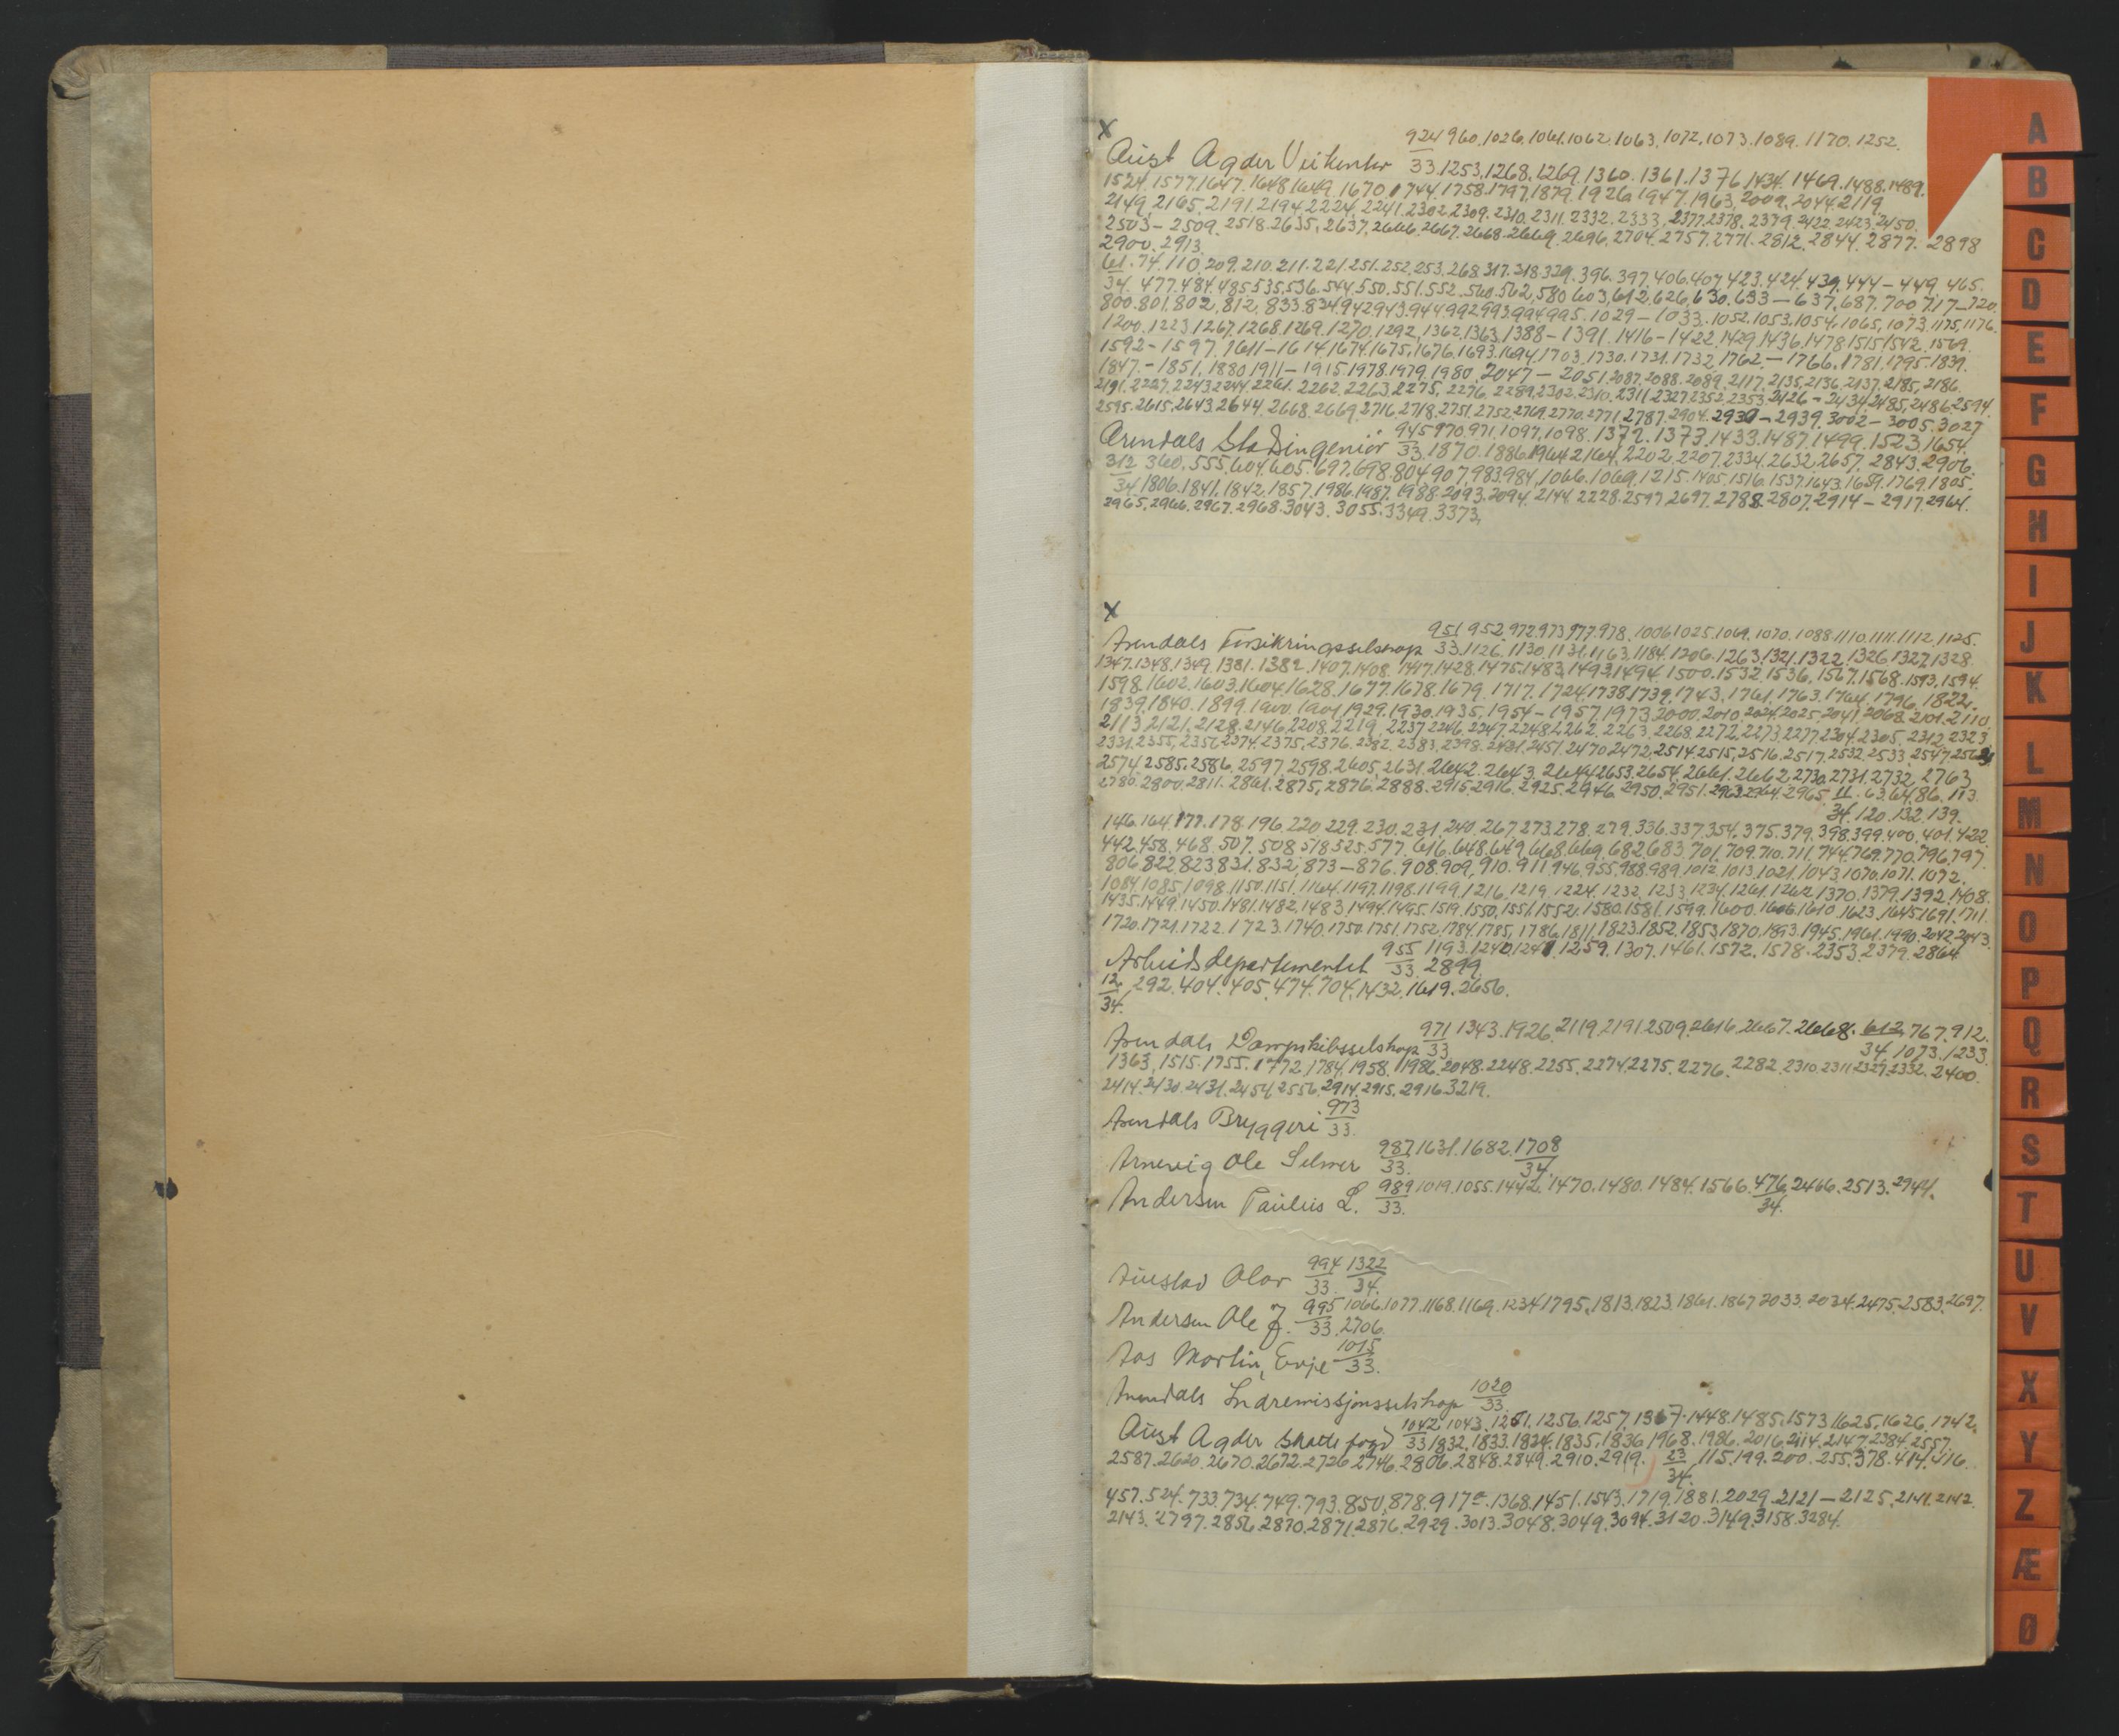 x
924 960. 1026. 1061. 1062. 1063. 1072. 1073. 1089. 1170. 1252.
Aust Agder Veikontor 33. 1253. 1268. 1269. 1360. 1361. 1376. 1434. 1469. 1488. 1489.
1524. 1577. 1647. 1648. 1649. 1670. 1744. 1758. 1797. 1879. 1926. 1947. 1963. 2009. 2044. 2119
2149. 2165. 2191. 2194. 2224. 2241. 2302. 2309. 2310. 2311. 2332. 2333. 2377. 2378. 2379. 2422. 2423. 2450.
2503 - 2509. 2518. 2635. 2637. 2666. 2667. 2668. 2669. 2696. 2704. 2757. 2771. 2812. 2844. 2877. 2898
2900. 2913.
61. 74. 110. 209. 210. 211. 221. 251. 252. 253. 268. 317. 318. 329. 396. 397. 406. 407. 423. 424. 439. 444 - 449. 465.
34. 477. 484. 485. 535. 536. 544. 550. 551. 552. 560. 562. 580. 603. 612. 626. 630. 633 - 637. 687. 700. 717 - 720.
800. 801. 802. 812. 833. 834. 942. 943. 944. 992. 993. 994. 995. 1029 - 1033. 1052. 1053. 1054. 1065. 1073. 1175. 1176.
1200. 1223. 1267. 1268. 1269. 1270. 1292. 1362. 1363. 1388 - 1391. 1416 - 1422. 1429. 1436. 1478. 1515. 1542. 1569.
1592 - 1597. 1611 - 1614. 1674. 1675. 1676. 1693. 1694. 1703. 1730. 1731. 1732. 1762 - 1766. 1781. 1795. 1839.
1847 - 1851. 1880. 1911 - 1915. 1978. 1979. 1980. 2047 - 2051. 2087. 2088. 2089. 2117. 2135. 2136. 2137. 2185. 2186.
2191. 2227. 2243. 2244. 2261. 2262. 2263. 2275. 2276. 2289. 2302. 2310. 2311. 2327. 2352. 2353. 2426 - 2434. 2485. 2486. 2594.
2595. 2615. 2643. 2644. 2668. 2669. 2716. 2718. 2751. 2752. 2769. 2770. 2771. 2787. 2904. 2930 - 2939. 3002 - 3005. 3027
945 970. 971. 1097. 1098. 1372. 1373. 1433. 1487. 1499. 1523. 1654.
Arendals Stadsingeniör 33. 1870. 1886. 1964. 2164. 2202. 2207. 2334. 2632. 2657. 2843. 2906.
312 360. 555. 604. 605. 697. 698. 804. 907. 983. 984. 1066. 1069. 1215. 1405. 1516. 1537. 1643. 1659. 1769. 1805.
34. 1806. 1841. 1842. 1857. 1986. 1987. 1988. 2093. 2094. 2144. 2228. 2597. 2697. 2788. 2807. 2914 - 2917. 2964.
2965. 2966. 2967. 2968. 3043. 3055. 3349. 3373.
x
951 952. 972. 973. 977. 978. 1006. 1025. 1069. 1070. 1088. 1110. 1111. 1112. 1125.
Arendals Forsikringsselskap 33. 1126. 1130. 1131. 1163. 1184. 1206. 1263. 1321. 1322. 1326. 1327. 1328.
1347. 1348. 1349. 1381. 1382. 1407. 1408. 1417. 1428. 1475. 1483. 1493. 1494. 1500. 1532. 1536. 1567. 1568. 1593. 1594.
1598. 1602. 1603. 1604. 1628. 1677. 1678. 1679. 1717. 1724. 1738. 1739. 1743. 1761. 1763. 1764. 1796. 1822.
1839. 1840. 1899. 1900. 1901. 1929. 1930. 1935. 1954 - 1957. 1973. 2000. 2010. 2024. 2025. 2041. 2068. 2101. 2110.
2113. 2121. 2128. 2146. 2208. 2219. 2237. 2246. 2247. 2248. 2262. 2263. 2268. 2272. 2273. 2277. 2304. 2305. 2312. 2323.
2331. 2355. 2356. 2374. 2375. 2376. 2382. 2383. 2398. 2431. 2451. 2470. 2472. 2514. 2515. 2516. 2517. 2532. 2533. 2547.
2574. 2585. 2586. 2597. 2598. 2605. 2631. 2642. 2643. 2644. 2653. 2654. 2661. 2662. 2730. 2731. 2732. 2763
2780. 2800. 2811. 2861. 2875. 2876. 2888. 2915. 2916. 2925. 2946. 2950. 2951. 2963. 2964. 2965. 11. 63. 64. 86. 113.
34. 120. 132. 139.
146. 164. 177. 178. 196. 220. 229. 230. 231. 240. 267. 273. 278. 279. 336. 337. 354. 375. 379. 398. 399. 400. 401. 422.
442. 458. 468. 507. 508. 518. 525. 577. 616. 648. 649. 668. 669. 682. 683. 701. 709. 710. 711. 744. 769. 770. 796. 797.
806. 822. 823. 831. 832. 873 - 876. 908. 909. 910. 911. 946. 955. 988. 989. 1012. 1013. 1021. 1043. 1070. 1071. 1072.
1084. 1085. 1098. 1150. 1151. 1164. 1197. 1198. 1199. 1216. 1219. 1224. 1232. 1233. 1234. 1261. 1262. 1370. 1379. 1392. 1408.
1435. 1449. 1450. 1481. 1482. 1483. 1494. 1495. 1519. 1550. 1551. 1552. 1580. 1581. 1599. 1600. 1606. 1610. 1623. 1645. 1691. 1711.
1720. 1721. 1722. 1723. 1740. 1750. 1751. 1752. 1784. 1785. 1786. 1811. 1823. 1852. 1853. 1870. 1893. 1945. 1961. 1990. 2042. 2043.
955 1193. 1240. 1241. 1259. 1307. 1461. 1572. 1578. 2353. 2379. 2864.
Arbeidsdepartementet 33. 2899.
12. 292. 404. 405. 474. 704. 1432. 1619. 2656.
34.
971 1343. 1926. 2119. 2191. 2509. 2616. 2667. 2668. 612. 767. 912.
Arendals Dampskibsselskap 33. 34. 1073. 1233.
1363. 1515. 1755. 1772. 1784. 1958. 1986. 2048. 2248. 2255. 2274. 2275. 2276. 2282. 2310. 2311. 2327. 2332. 2400.
2414. 2430. 2431. 2454. 2556. 2914. 2915. 2916. 3219.
973
Arendals Bryggeri 33.
987. 1631. 1682. 1708
Arnevig Ole Selmer 33. 34.
989 1019. 1055. 1442. 1470. 1480. 1484. 1566. 476. 2466. 2513. 2944.
Andersen Paulus L. 33. 34.
994 1322
Auslad Olav 33. 34.
995 1066. 1077. 1168. 1169. 1234. 1795. 1813. 1823. 1861. 1867. 2033. 2034. 2475. 2583. 2697.
Andersen Ole J. 33. 2706.
1015
Aas Martin, Evje 33.
1020
Arendals Indremissjonsselskap 33.
1042 1043. 1251. 1256. 1257. 1367. 1448. 1485. 1573. 1625. 1626. 1742.
Aust Agder Skattefogd 33. 1832. 1833. 1834. 1835. 1836. 1968. 1986. 2016. 2114. 2147. 2384. 2557.
2587. 2620. 2670. 2672. 2726. 2746. 2806. 2848. 2849. 2910. 2919. 23 115. 199. 200. 255. 378. 414. 416.
34.
457. 524. 733. 734. 749. 793. 850. 878. 917a. 1368. 1451. 1543. 1719. 1881. 2029. 2121 - 2125. 2141. 2142.
2143. 2797. 2856. 2870. 2871. 2876. 2929. 3013. 3048. 3049. 3094. 3120. 3149. 3158. 3284.
A
B
C
D
E
F
G
H
I
J
K
L
M
N
O
P
Q
R
S
T
U
V
X
Y
Z
Æ
Ø